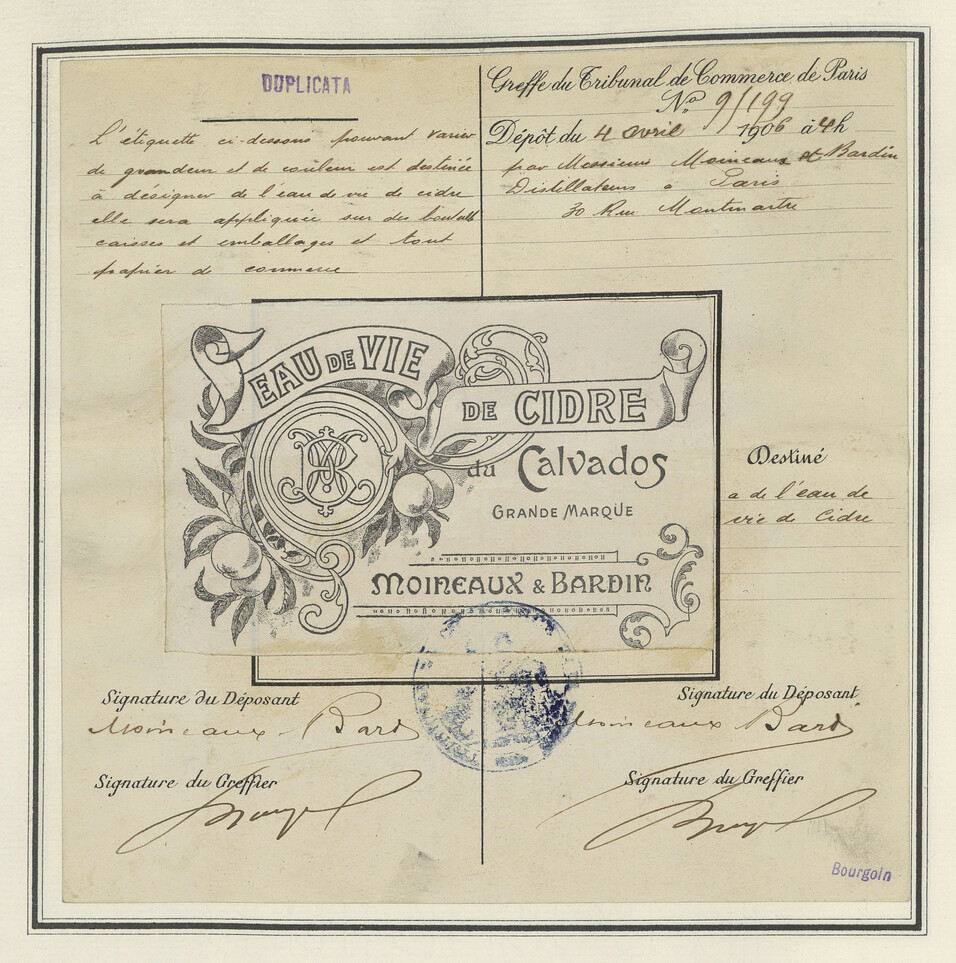 DUPLICATA
L'étiquette ci-dessous pouvant varier
de grandeur et de couleur est destinée
à désigner de l'eau de vie de cidre
elle sera appliquée sur des
caisses et emballages et tout
papier de commerce
Greffe du Tribunal de Commerce de Paris
No 9/199
Dépôt du 4 avril 1906 à 4h
par Messieurs Moineaux et Bardin
Distillateurs a Paris
30 Rue Montmartre
EAU DE VIE
DE CIDRE
du Calvados
GRANDE MARQUE
MOINEAUX & BARDIN
Destiné
a de l'eau de
vie de Cidre
Signature du Déposant
Moineaux Bard
Signature du Greffier
Signature du Déposant
Moineaux Bard
Signature du Greffier
Bourgoin